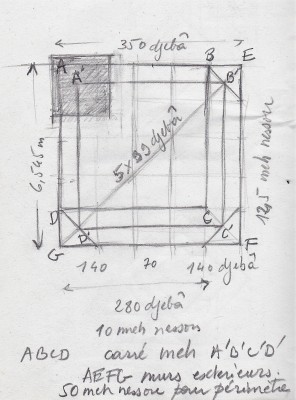 350 djebâ
A
B
E
A'
B'
6,545 m
5 x 99 djebâ
12,5 meh nesout
D
C
D'
C'
G
F
140
70
140 djebâ
280 djebâ
10 meh nesout
ABCD carré meh A'B'C'D'
AEFG murs exterieurs.
50 meh nesout pour périmètre